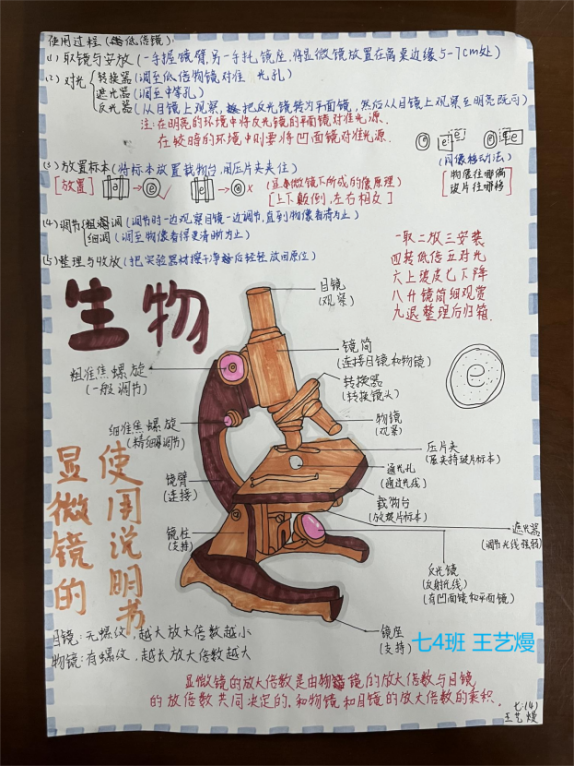 使用过程(低倍镜):
(1)取镜与安放(一手握镜臂,另一手托镜座,将显微镜放置在离桌边缘5-7cm处)
(2)对光 转换器(调至低倍物镜对准 光孔)
遮光器(调至中等孔)
反光器(从目镜上观察,把反光镜转为平面镜,然后从目镜上观察至明亮既可)
注:在明亮的环境中将反光镜的平面镜对准光源.
在较暗的环境中则要将凹面镜对准光源.
(3)放置标本(将标本放置载物台,用压片夹夹住)
[放置] e e ✓ e e ×
(显微镜下所成的像原理)
[上下颠倒,左右相反]
e e
(用像移动法)
物像往哪偏
玻片往哪移
(4)调节 粗调(调节时一边观察目镜一边调节,直到物像看清为止)
细调(调至物像看得更清晰为止)
(5)整理与收放(把实验器材擦干净后轻轻放回原位)
一取二放三安装
四转低倍五对光
六上玻片七下降
八升镜筒细观赏
九退整理后归箱.
生物
显微镜的
使用说明书
目镜
(观察)
镜筒
(连接目镜和物镜)
转换器
(转换镜头)
物镜
(观察)
压片夹
通光孔
(通过光线)
载物台
(放玻片标本)
遮光器
(调节光线强弱)
反光镜
(反射光线)
(有凹面镜和平面镜)
镜座
(支持)
粗准焦螺旋
(一般调节)
细准焦螺旋
(精细调节)
镜臂
(连接)
镜柱
(支持)
e
目镜:无螺纹,越大放大倍数越小
物镜:有螺纹,越长放大倍数越大
七4班 王艺熳
显微镜的放大倍数是由物镜的放大倍数与目镜
的放倍数共同决定的,和物镜和目镜的放大倍数的乘积.
七(4)
王艺熳